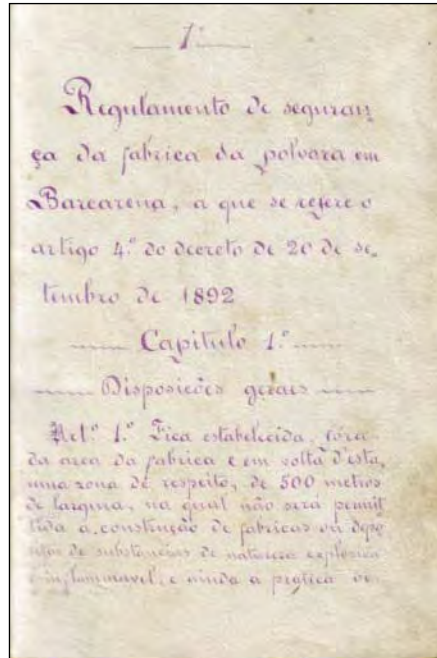 1º
Regulamento de seguran
ça da fabrica da polvora em
Barcarena, a que se refere o
artigo 4.º do decreto de 20 de se-
tembro de 1892
Capitulo 1.º
Disposições geraes
Art.º 1.º Fica estabelecida, fóra
da area da fabrica e em volta d'esta,
uma zona de respeito, de 500 metros
de largura, na qual não será permit
tida a construção de fabricas ou depo
sitos de substancias de natureza explosiva
e inflammavel, e ainda a pratica de